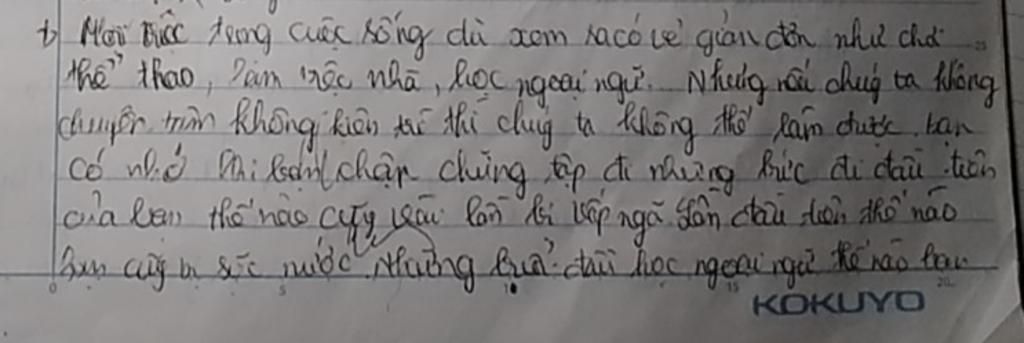 b) Mọi việc trong cuộc sống dù xem ra có vẻ giản đơn như chơi
thể thao, làm việc nhà, học ngoại ngữ. Nhưng nếu chúg ta không
chuyên tâm không kiên trì thì chúg ta không thể làm được. bạn
có nhớ khi bạn chập chững tập đi những bước đi đầu tiên
của bạn thế nào cũg vài lần bị vấp ngã lần đầu tiên thế nào
bạn cũg bị sặc nước. Những buổi đầu học ngoại ngữ thế nào bạn
KOKUYO